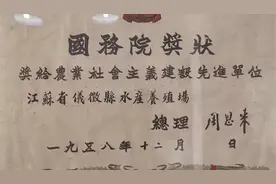 國務院獎狀
獎給農業社會主義建設先進單位
江蘇省儀徵縣水產養殖場
總理 周恩來
一九五八年十二月 日